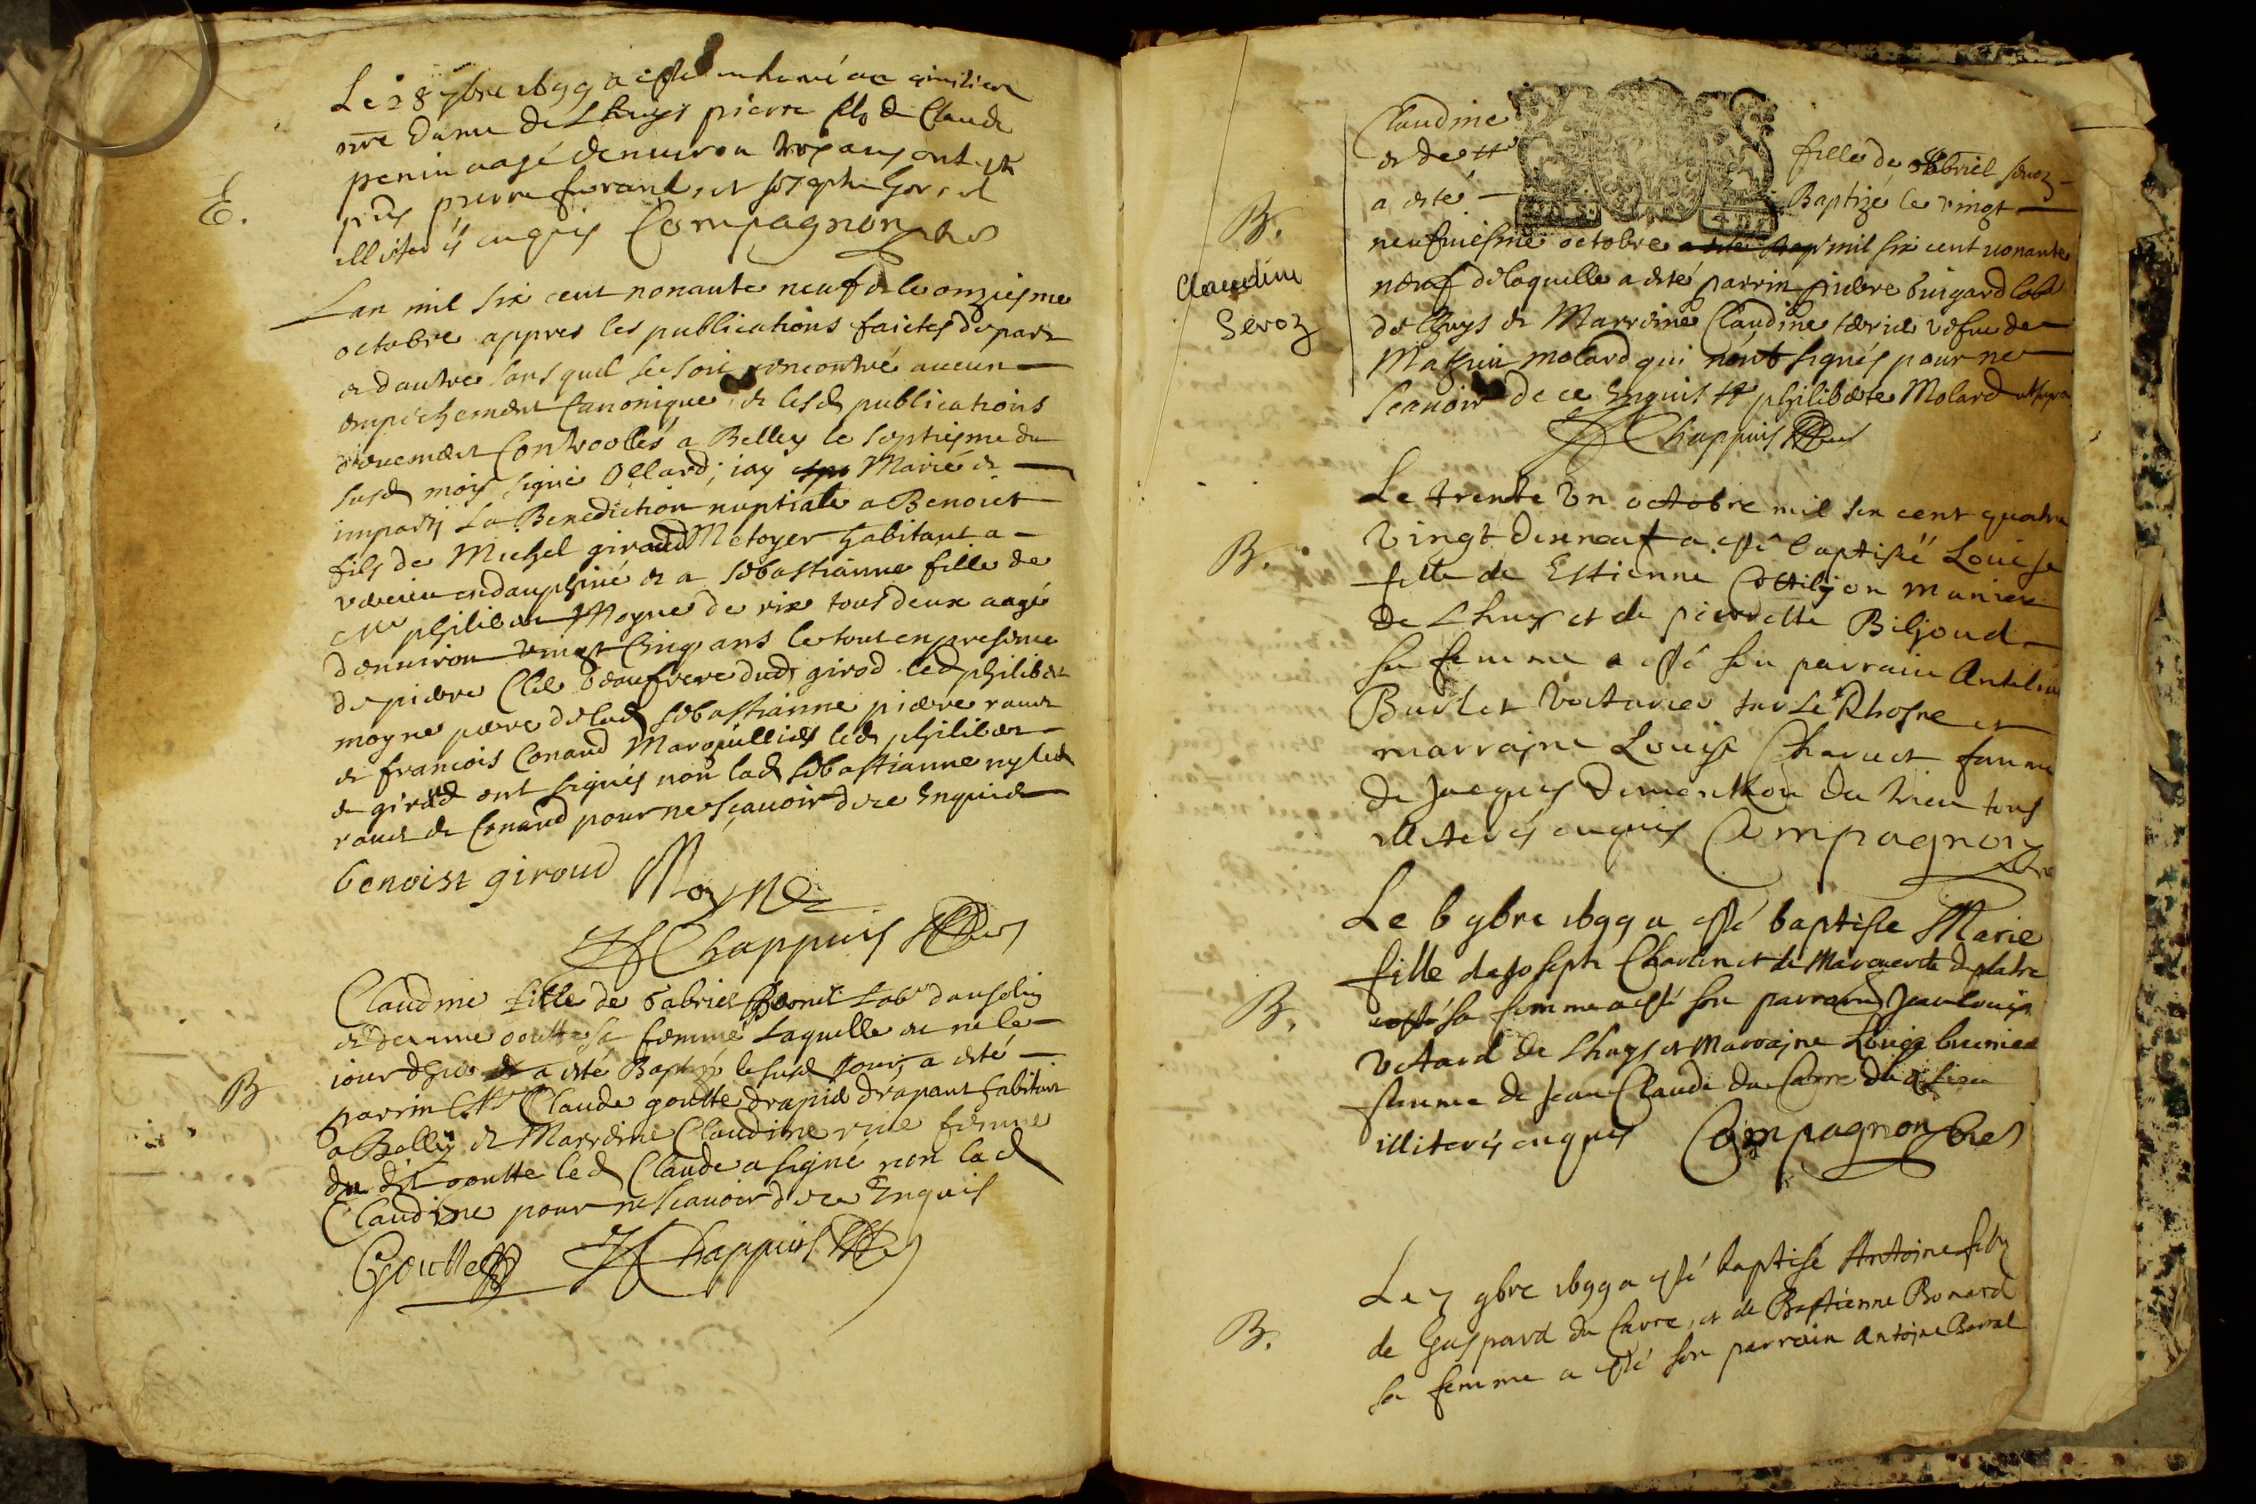 Le 28 7bre 1699 a esté enterré au cimitiere
nre Dame de Lhuys pierre fils de Claude
penin aagé denuiron trois ans ont esté
pnts pierre furand, et joseph Gor, et
illiterés enquis Compagnon
E.
Lan mil six cent nonante neuf & le onziesme
octobre appres les publications faictes de part
& dautre sans quil se soit rencontré aucun
empechement Canonique & lesd publications
duement Controolles a Belley le septiesme du
susd mois signé Ollard, iay Marié &
imparti La Benediction nuptiale a Benoict
fils de Michel giroud Metoyer habitant a
en dauphiné & a sebastianne fille de
Mre philibert Moyne de rix tous deux aagé
denuiron vingt Cinq ans le tout en presence
de pierre Clet beaufrere dud girod led philibert
moyne pere de lad sebastianne pierre roux
& francois Conand Marquilliers led philibert
& giroud ont signés non lad sebastianne ny led
roux & Conand pour ne scauoir de ce Enquis
benoist giroud Moyne
Chappuis
Claudine fille de Gabriel Labr dansolin
& de goutte sa femme Laquelle est née le
iour dhier a esté Baptizé le susd Jour, a esté
B
parrin Mre Claude goutte drapier drapant habitant
a Belley & Marreine Claudine femme
du dit goutte led Claude a signé non lad
Claudine pour ne scauoir de ce Enquis
Goutte Chappuis
Claudine fille de gabriel seuoz
& de #
a esté Baptizé le vingt
B.
neufuiesme octobre mil six cent nonante
Claudine
Sevoz
neuf de laquelle a esté parrin pierre guigard labr
de lhuys & Marreine Claudine vefue de
Mathieu molard qui nont signés pour ne
scauoir de ce Enquis # philiberte Molard
Chappuis
Le trente vn octobre mil six cent quatre
B.
vingt dixneuf a esté baptisée Louise
fille de Estienne Cottilion munier
de Lhuys et de pierrette Biljoud
sa femme a esté son parrain Antelme
Burlet voiturier sur Le Rhosne et
marrajne Louise Charuet femme
de jacques Dementhon du lieu tous
illiterés enquis Compagnon
Le 6 9bre 1699 a esté baptisée Marie
fille de Joseph et de Marguerite
B.
sa femme a esté son parrain Jean louis
de Lhuys et Marrajne Louise
femme de Jean Claude du Carre dud lieu
illiterés enquis Compagnon
Le 7 9bre 1699 a esté baptisé Antoine fils
B.
de Gaspard du Carre, et de Bastienne Bonard
sa femme a esté son parrain Antoine